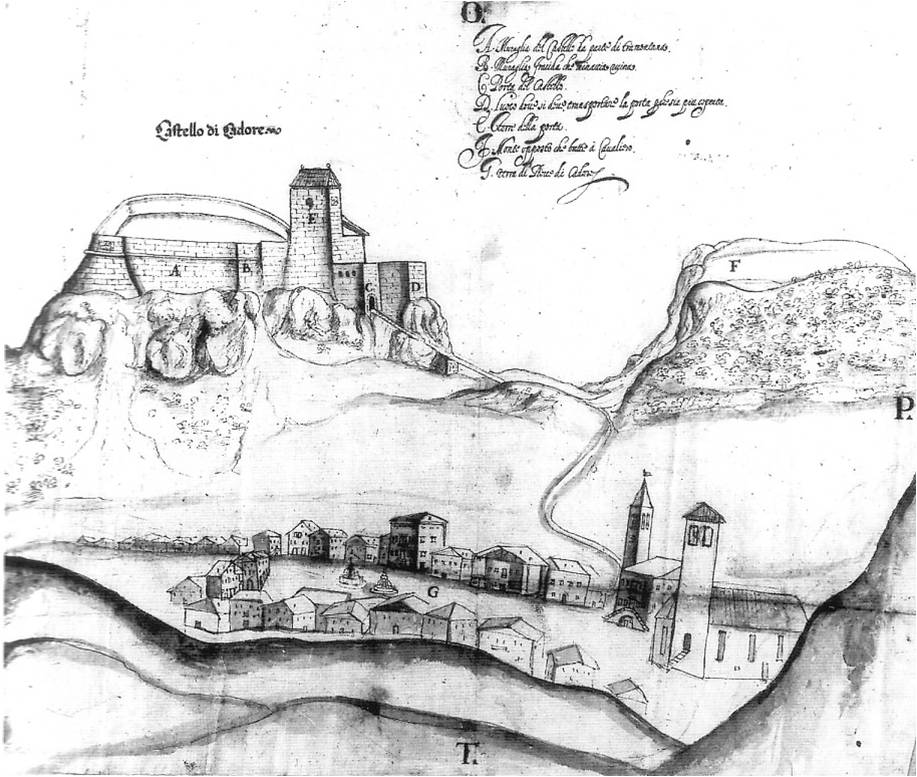 O.
A. Muraglia del Castello da parte di tramontana.
B. Muraglia che minaccia ruina.
C. Porta del Castello.
D. Luoco dove si deve transportare la porta più
E. Torre della porta.
F. Monte opposto che batte à Cavaliero.
G. terra di Pieve di Cadore
Castello di Cadore
E
A
B
C
D
F
P.
G
T.